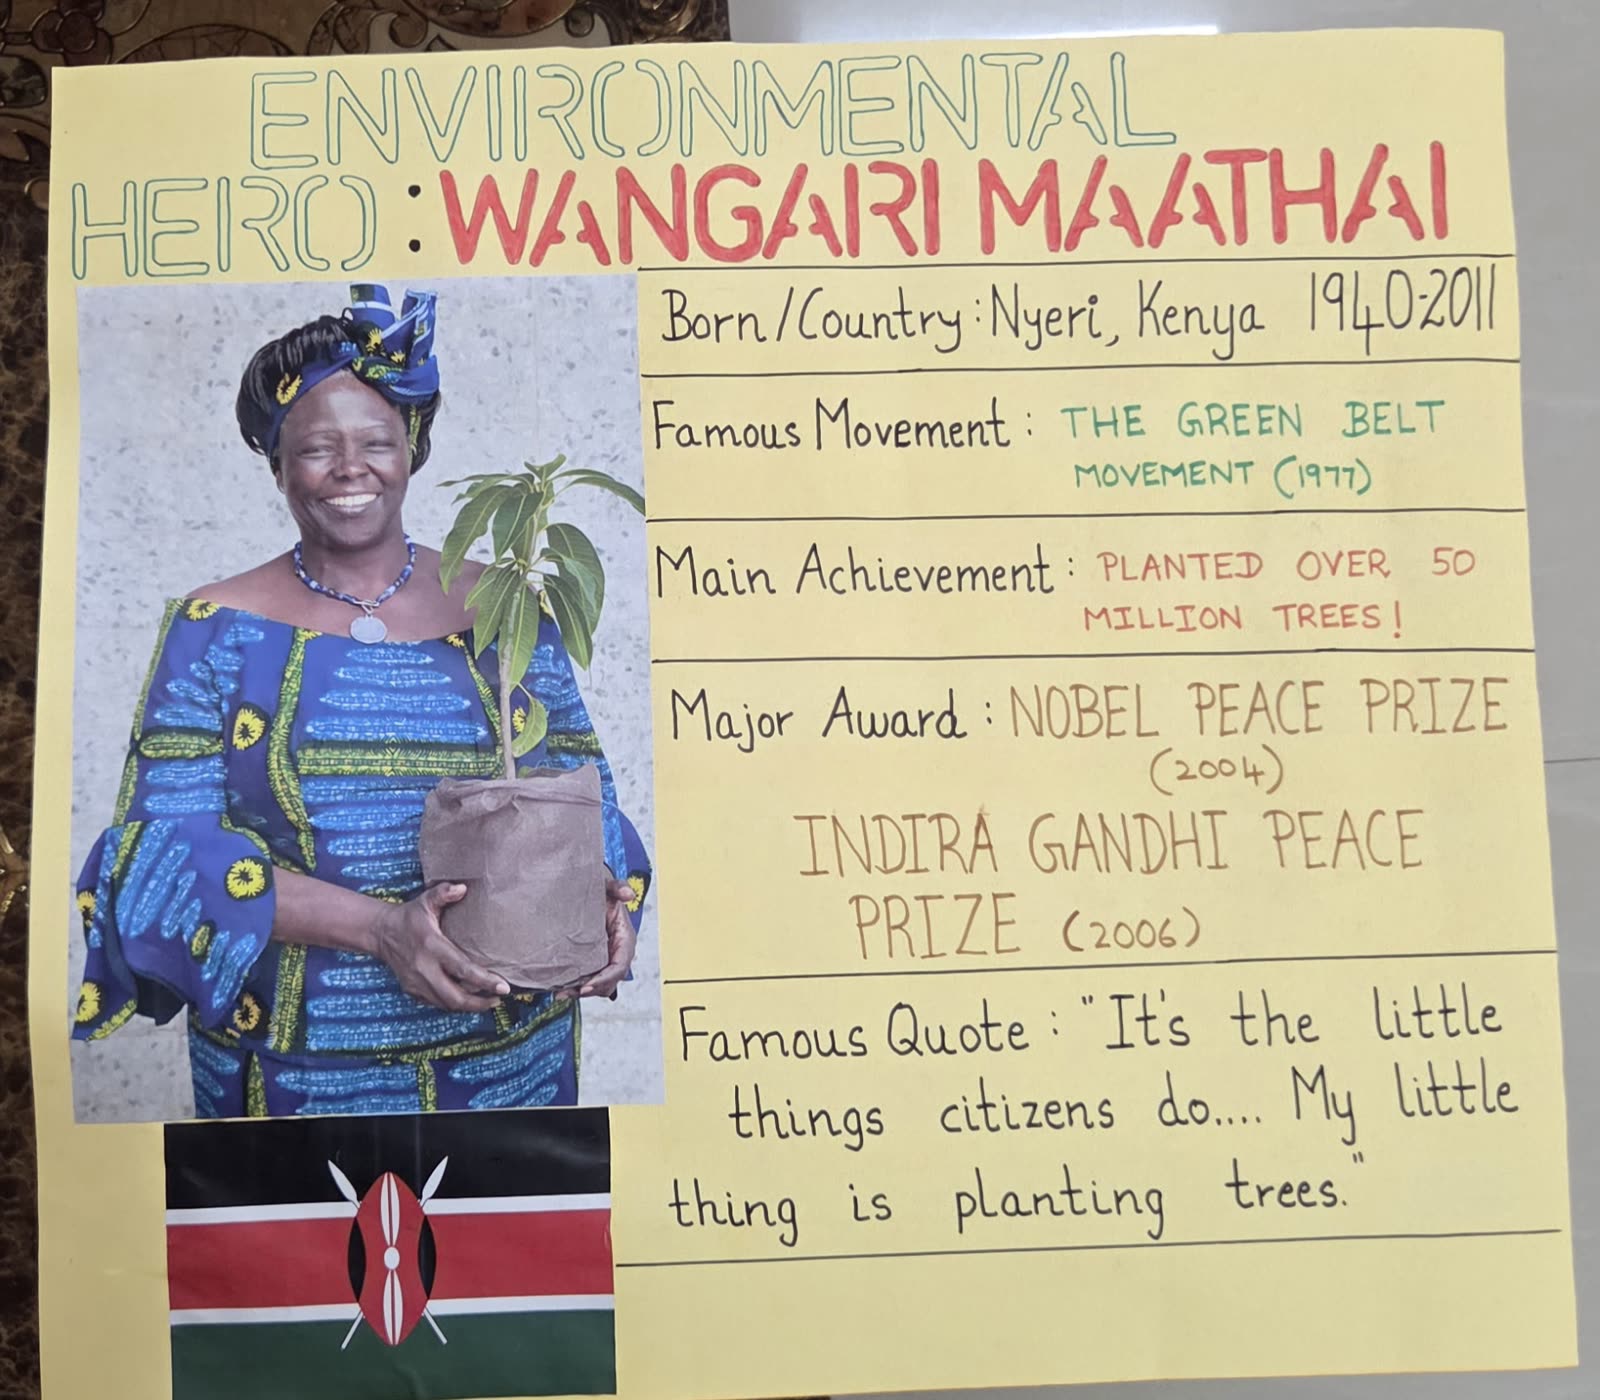 ENVIRONMENTAL
HERO : WANGARI MAATHAI
Born/Country : Nyeri, Kenya 1940-2011
Famous Movement : THE GREEN BELT
MOVEMENT (1977)
Main Achievement : PLANTED OVER 50
MILLION TREES!
Major Award : NOBEL PEACE PRIZE
(2004)
INDIRA GANDHI PEACE
PRIZE (2006)
Famous Quote : "It's the little
things citizens do.... My little
thing is planting trees."